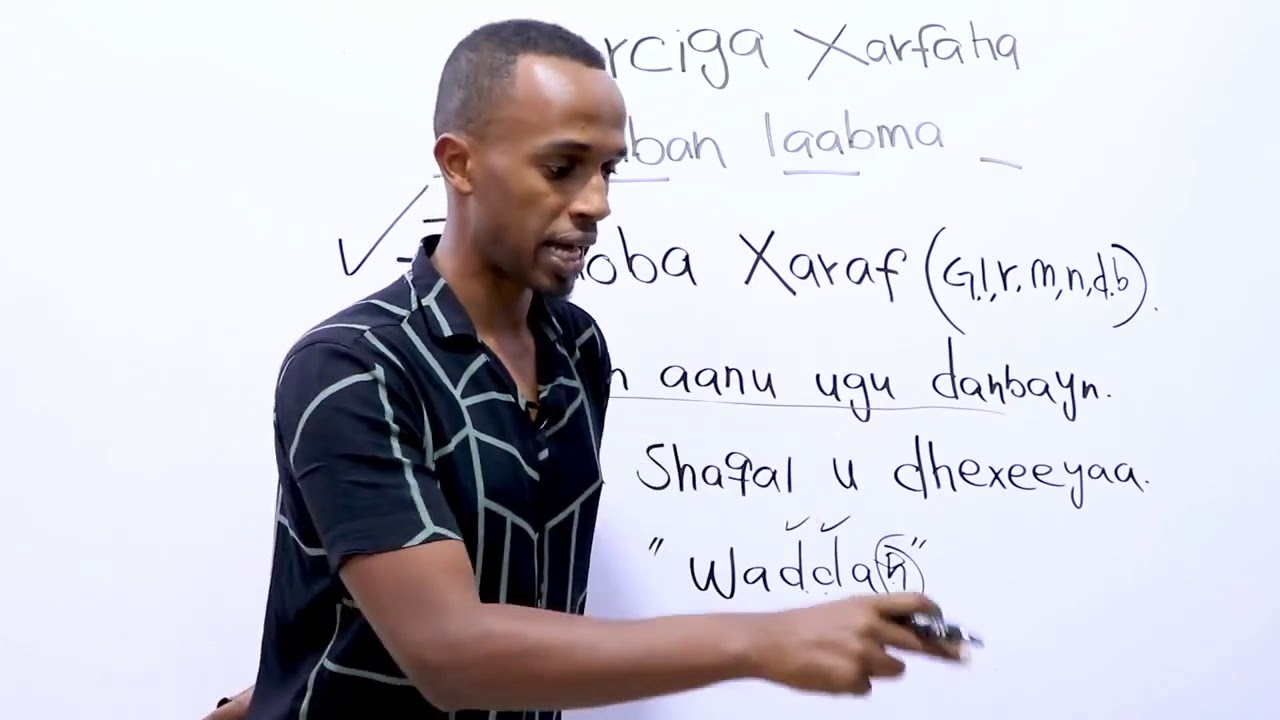 rciga Xarfaha
ban laabma
oba Xaraf (G,l,r,m,n,d,b).
n aanu ugu danbayn.
Shaqal u dhexeeyaa.
"Waddan"